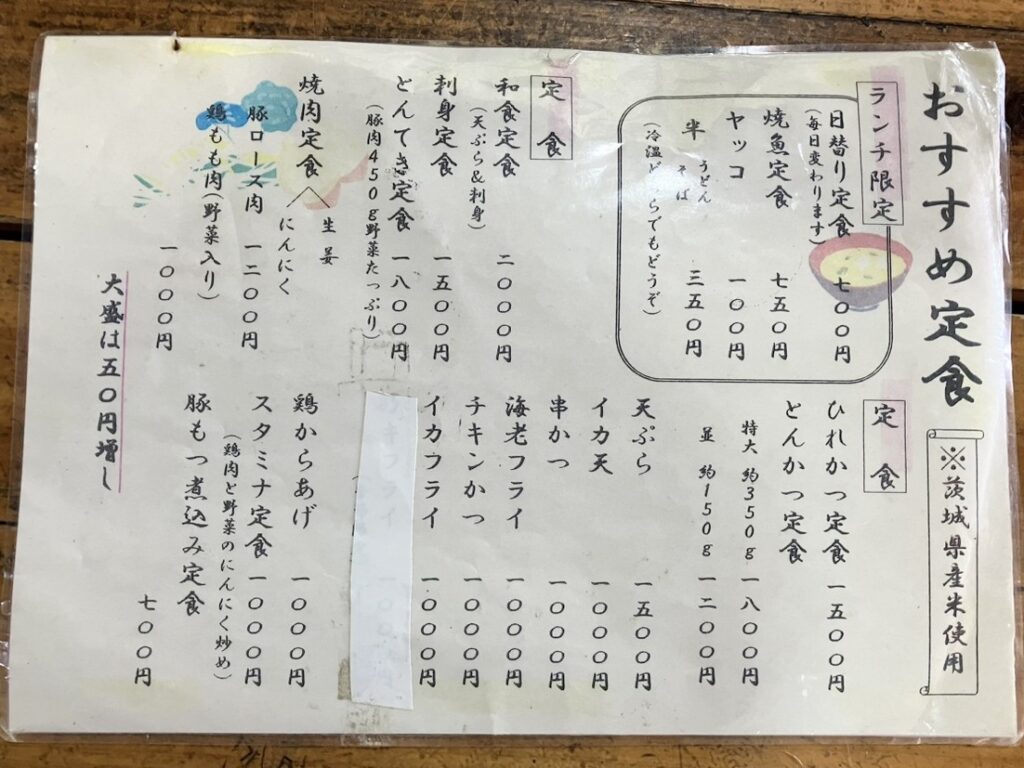 おすすめ定食
※茨城県産米使用
ランチ限定
日替り定食 七〇〇円
(毎日変わります)
焼魚定食 七五〇円
ヤッコ 一〇〇円
半 うどん そば 三五〇円
(冷温どちらでもどうぞ)
定食
和食定食 二〇〇〇円
(天ぷら&刺身)
刺身定食 一五〇〇円
とんてき定食 一八〇〇円
(豚肉450g野菜たっぷり)
焼肉定食 生姜 にんにく
豚ロース肉 一二〇〇円
鶏もも肉(野菜入り) 一〇〇〇円
定食
ひれかつ定食 一五〇〇円
とんかつ定食
特大 約350g 一八〇〇円
並 約150g 一二〇〇円
天ぷら 一五〇〇円
イカ天 一〇〇〇円
串かつ 一〇〇〇円
海老フライ 一〇〇〇円
チキンかつ 一〇〇〇円
イカフライ 一〇〇〇円
鶏からあげ 一〇〇〇円
スタミナ定食 一〇〇〇円
(鶏肉と野菜のにんにく炒め)
豚もつ煮込み定食 七〇〇円
大盛は五〇円増し